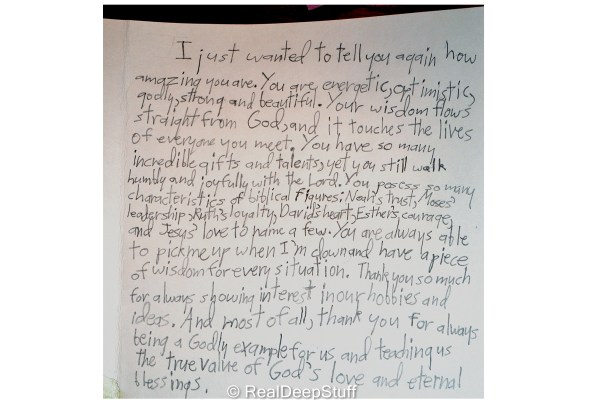 I just wanted to tell you again how
amazing you are. You are energetic, optimistic,
godly, strong and beautiful. Your wisdom flows
straight from God, and it touches the lives
of everyone you meet. You have so many
incredible gifts and talents, yet you still walk
humbly and joyfully with the Lord. You posess so many
characteristics of biblical figures; Noah's trust, Moses'
leadership, Ruth's loyalty, David's heart, Esther's courage,
and Jesus' love to name a few. You are always able
to pick me up when I'm down and have a piece
of wisdom for every situation. Thank you so much
for always showing interest in our hobbies and
ideas. And most of all, thank you for always
being a Godly example for us and teaching us
the true value of God's love and eternal
blessings.
© RealDeepStuff